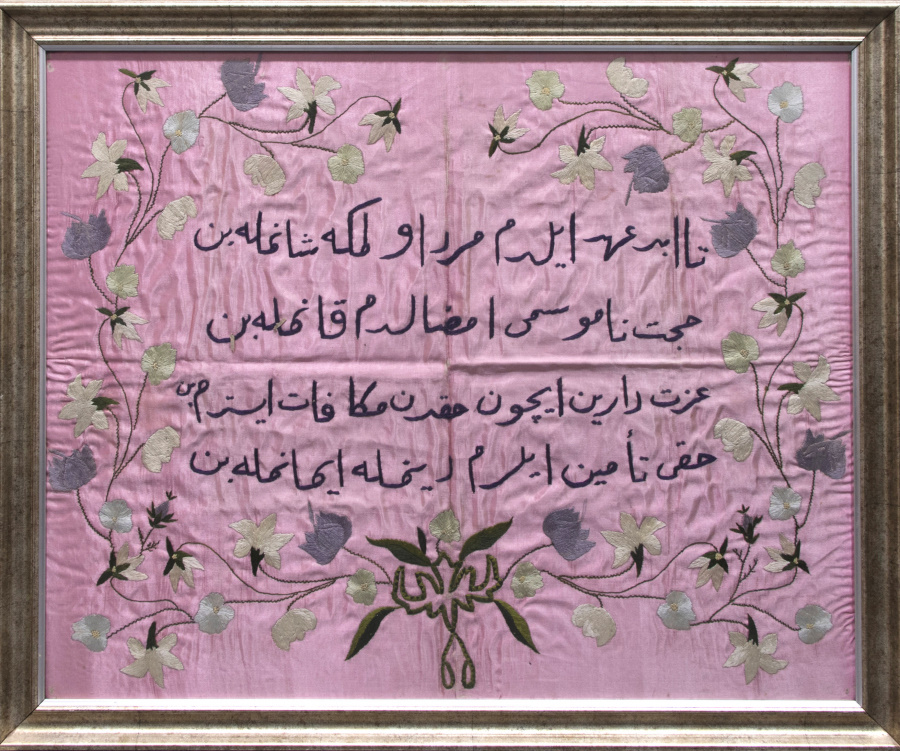 تا ابد عهد ایلدم مرد اولمکه شانمله بن
حجت ناموسمی امضالدم قانمله بن
عزت دارین ایچون حقدن مکافات ایسترم بن
حقی تأمین ایلرم دینمله ایمانمله بن